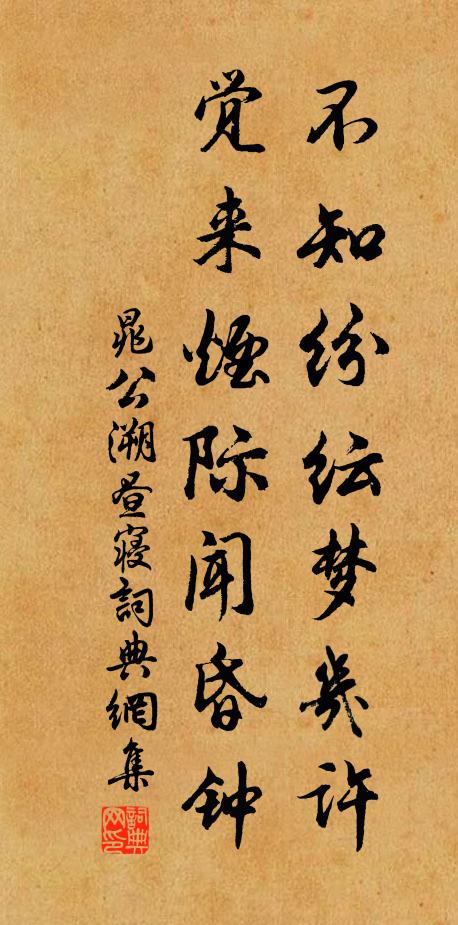 不知纷纭梦几许
觉来烟际闻昏钟
晁公溯昼寝詞典網集
詞典网印